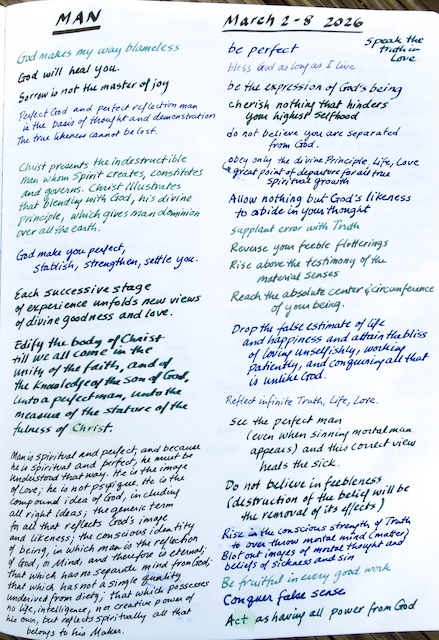 MAN
God makes my way blameless
God will heal you.
Sorrow is not the master of joy
Perfect God and perfect reflection man
is the basis of thought and demonstration
The true likeness cannot be lost.
Christ presents the indestructible
man whom Spirit creates, constitutes
and governs. Christ illustrates
that blending with God, his divine
principle, which gives man dominion
over all the earth.
God make you perfect,
stablish, strengthen, settle you.
Each successive stage
of experience unfolds new views
of divine goodness and love.
Edify the body of Christ
till we all come in the
unity of the faith, and of
the knowledge of the son of God,
unto a perfect man, unto the
measure of the stature of the
fulness of Christ.
Man is spiritual and perfect, and because
he is spiritual and perfect, he must be
understood that way. He is the image
of Love; he is not physique. He is the
compound idea of God, including
all right ideas; the generic term
for all that reflects God's image
and likeness; the conscious identity
of being, in which man is the reflection
of God, or Mind, and therefore is eternal;
that which has no separate mind from God;
that which has not a single quality
underived from diety; that which possesses
no life, intelligence, nor creative power of
his own, but reflects spiritually all that
belongs to his Maker.
March 2-8 2026
Speak the
truth in
Love
be perfect
bless God as long as I live
be the expression of God's being
cherish nothing that hinders
your highest selfhood
do not believe you are separated
from God.
obey only the divine Principle, Life, Love
great point of departure for all true
spiritual growth
Allow nothing but God's likeness
to abide in your thought
supplant error with Truth
Reverse your feeble flutterings
Rise above the testimony of the
material senses
Reach the absolute center & circumference
of your being.
Drop the false estimate of life
and happiness and attain the bliss
of loving unselfishly, working
patiently, and conquering all that
is unlike God.
Reflect infinite Truth, Life, Love.
See the perfect man
(even when sinning mortal man
appears) and this correct view
heals the sick.
Do not believe in feebleness
(destruction of the belief will be
the removal of its effects)
Rise in the conscious strength of Truth
to over throw mortal mind (matter)
Blot out images of mortal thought and
beliefs of sickness and sin
Be fruitful in every good work
Conquer false sense
Act as having all power from God